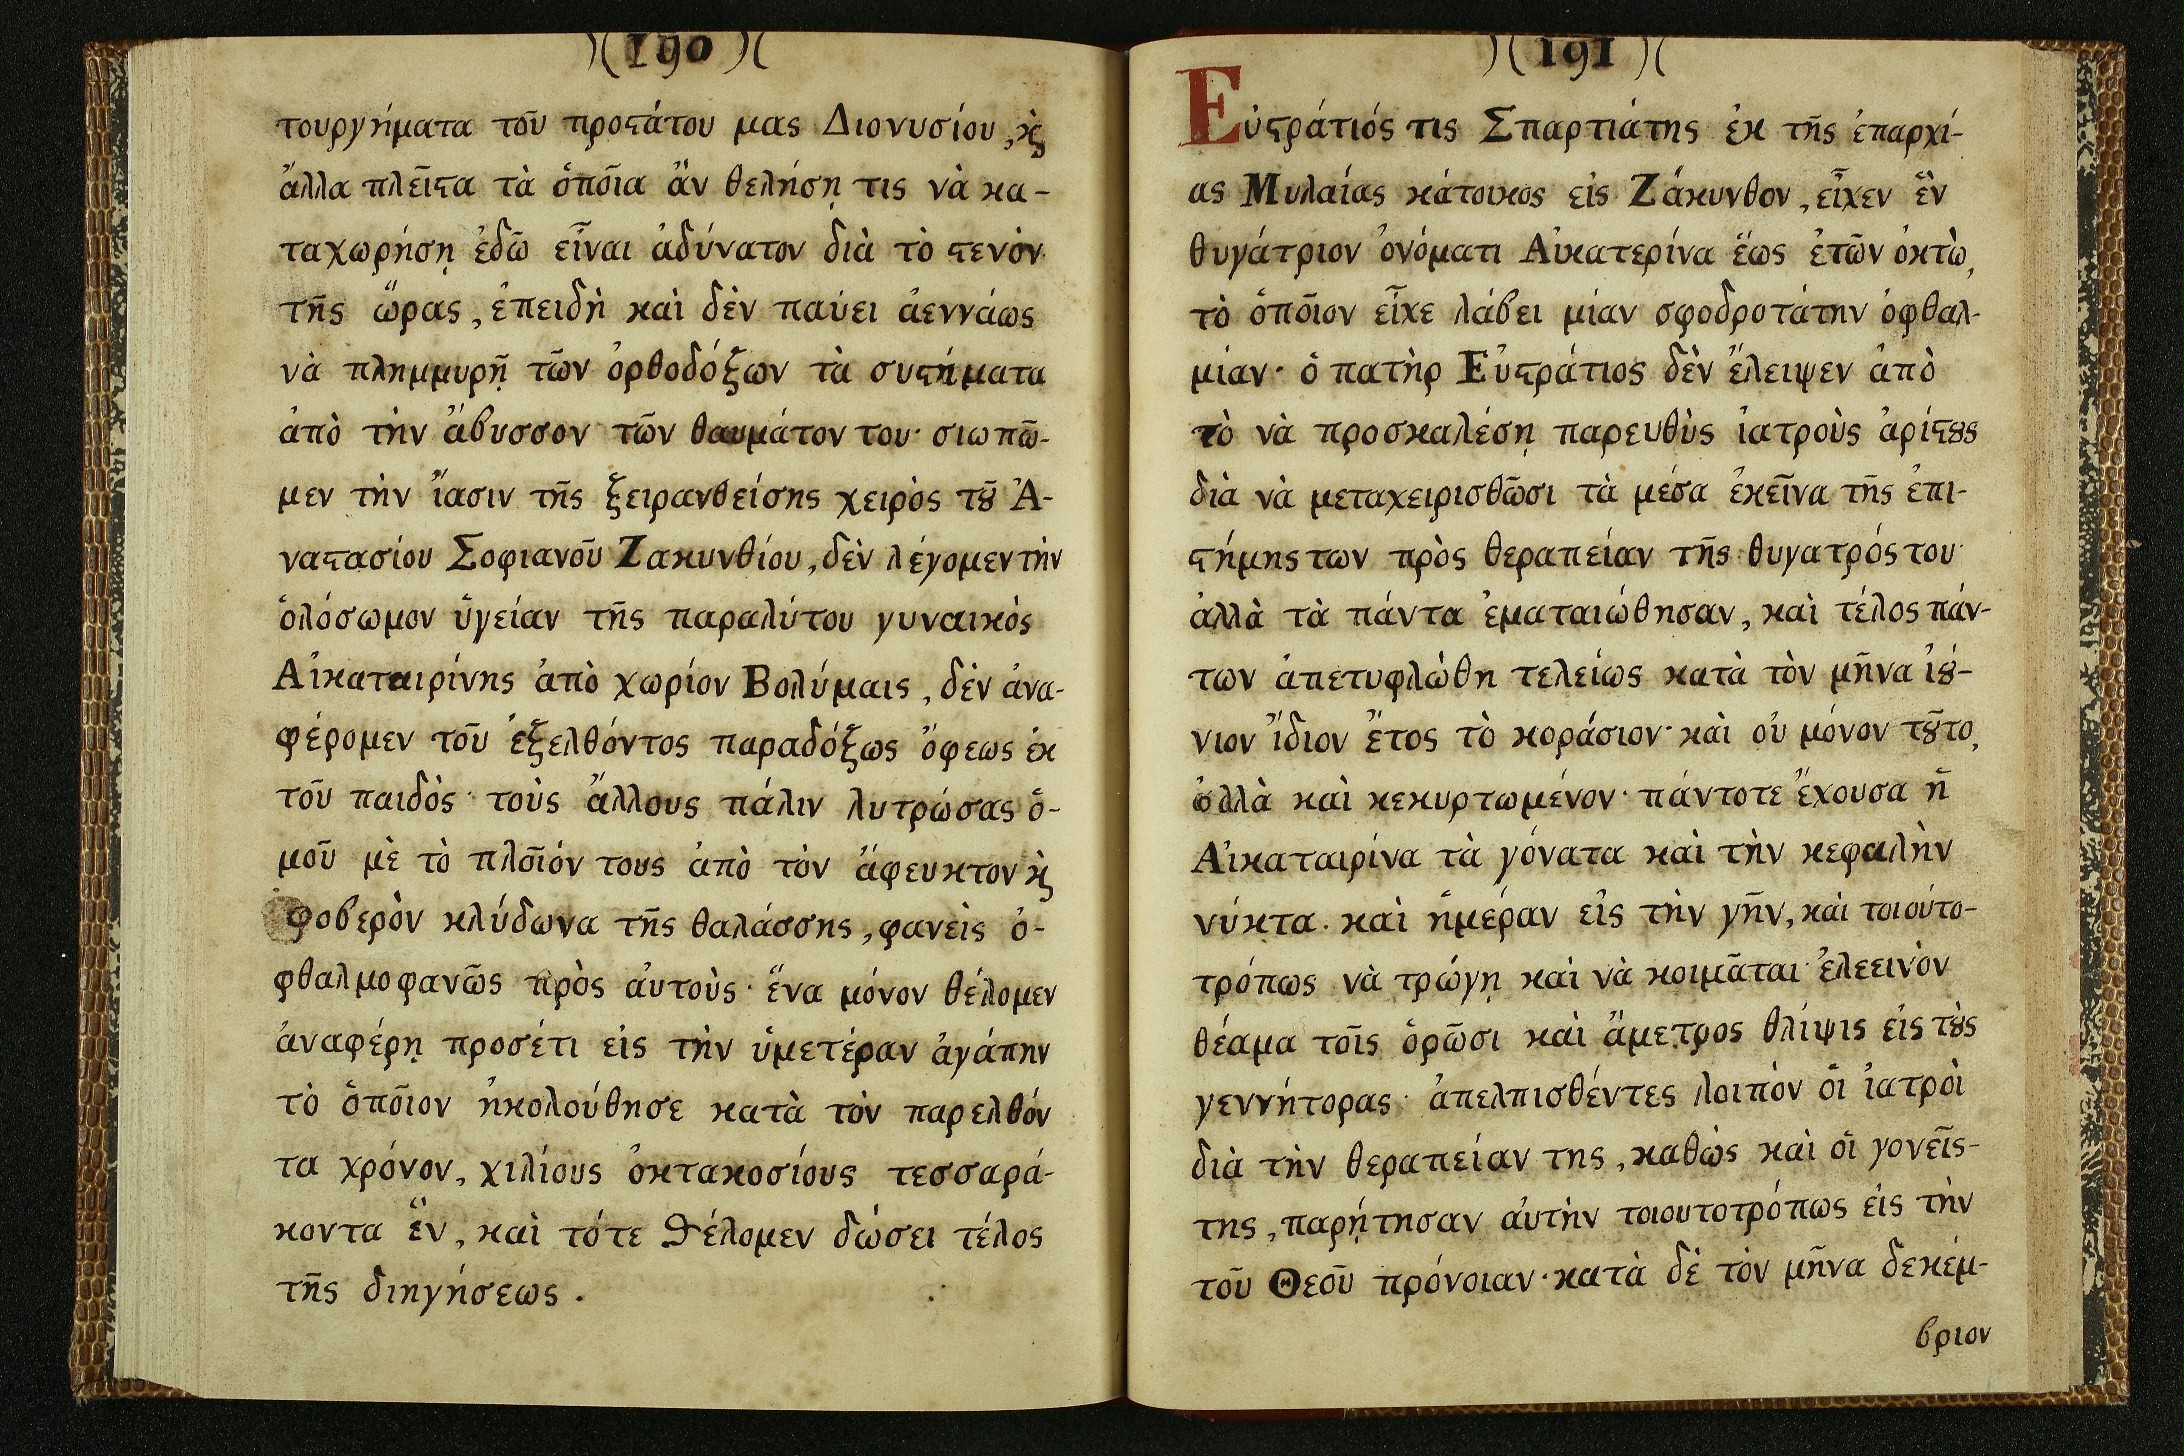 )( 190 )(
τουργήματα τοῦ προϛάτου μας Διονυσίου, ϗ̀
ἄλλα πλεῖϛα τὰ ὁποῖα ἂν θελήσῃ τις νὰ κα-
ταχωρήσῃ ἐδῶ εἶναι ἀδύνατον διὰ τὸ ϛενὸν
τῆς ὥρας, ἐπειδὴ καὶ δὲν παύει ἀεννάως
νὰ πλημμυρῇ τῶν ὀρθοδόξων τὰ συϛήματα
ἀπὸ τὴν ἄβυσσον τῶν θαυμάτον του· σιωπῶ-
μεν τὴν ἴασιν τῆς ξειρανθείσης χειρὸς τȣ͂ Ἀ-
ναϛασίου Σοφιανοῦ Ζακυνθίου, δὲν λέγομεν τὴν
ὁλόσωμον ὑγείαν τῆς παραλύτου γυναικὸς
Αἰκαταιρίνης ἀπὸ χωρίον Βολύμαις, δὲν ἀνα-
φέρομεν τοῦ ἐξελθόντος παραδόξως ὄφεως ἐκ
τοῦ παιδὸς· τοὺς ἄλλους πάλιν λυτρώσας ὁ-
μοῦ μὲ τὸ πλοῖόν τους ἀπὸ τὸν ἄφευκτον ϗ̀
φοβερὸν κλύδωνα τῆς θαλάσσης, φανεὶς ὀ-
φθαλμοφανῶς πρὸς αὐτοὺς· ἕνα μόνον θέλομεν
ἀναφέρῃ προσέτι εἰς τὴν ὑμετέραν ἀγάπην
τὸ ὁποῖον ἠκολούθησε κατὰ τὸν παρελθόν
τα χρόνον, χιλίους ὀκτακοσίους τεσσαρά-
κοντα ἓν, καὶ τότε ϑέλομεν δώσει τέλος
τῆς διηγήσεως.
)( 191 )(
Εὐϛράτιός τις Σπαρτιάτης ἐκ τῆς ἐπαρχί-
ας Μυλαίας κάτοικος εἰς Ζάκυνθον, εἶχεν ἓν
θυγάτριον ὀνόματι Αἰκατερίνα ἕως ἐτῶν ὀκτὼ,
τὸ ὁποῖον εἶχε λάβει μίαν σφοδροτάτην ὀφθαλ-
μίαν· ὁ πατὴρ Εὐϛράτιος δὲν ἔλειψεν ἀπὸ
τὸ νὰ προσκαλέσῃ παρευθὺς ἰατροὺς ἀρίϛȣς
διὰ νὰ μεταχειρισθῶσι τὰ μέσα ἐκεῖνα τῆς ἐπι-
ϛήμης των πρὸς θεραπείαν τῆς θυγατρός του·
ἀλλὰ τὰ πάντα ἐματαιώθησαν, καὶ τέλος πάν-
των ἀπετυφλώθη τελείως κατὰ τὸν μῆνα ἰȣ́-
νιον ἴδιον ἔτος τὸ κοράσιον· καὶ οὐ μόνον τȣ͂το,
ἀλλὰ καὶ κεκυρτωμένον· πάντοτε ἔχουσα ἡ
Αἰκαταιρίνα τὰ γόνατα καὶ τὴν κεφαλὴν
νύκτα. καὶ ἡμέραν εἰς τὴν γῆν, καὶ τοιούτο-
τρόπως νὰ τρώγῃ καὶ νὰ κοιμᾶται· ἐλεεινὸν
θέαμα τοῖς ὁρῶσι καὶ ἄμετρος θλίψις εἰς τȣ̀ς
γεννήτορας· ἀπελπισθέντες λοιπὸν οἱ ἰατροὶ
διὰ τὴν θεραπείαν της, καθὼς καὶ οἱ γονεῖς-
της, παρῄτησαν αὐτὴν τοιουτοτρόπως εἰς τὴν
τοῦ Θεοῦ πρόνοιαν· κατὰ δὲ τὸν μῆνα δεκέμ-
βριον